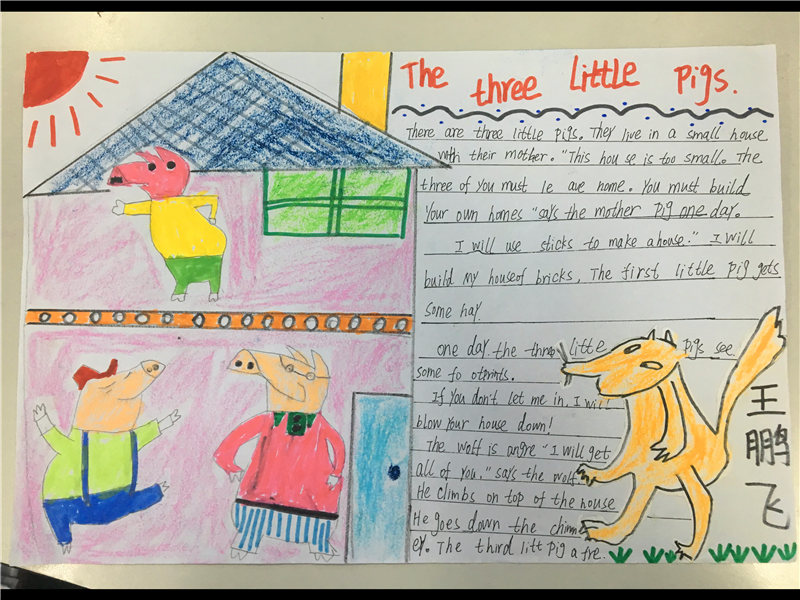 The three Little Pigs.
There are three little pigs. They live in a small house
with their mother. "This hou se is too small. The
three of you must le ave home. You must build
Your own homes "says the mother pig one day.
I will use sticks to make a house." I will
build my house of bricks, The first little pig gets
some hay
one day the three little pigs see
some fo otprints.
If you don't let me in, I will
blow your house down!
The wolf is angre "I will get
all of you," says the wolf
He climbs on top of the house
He goes down the chimn
ey. The third litt pig a fre.
王鹏飞